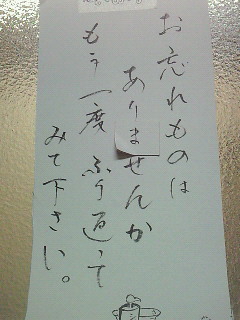 お忘れものは
ありませんか
もう一度ふり返って
みて下さい。